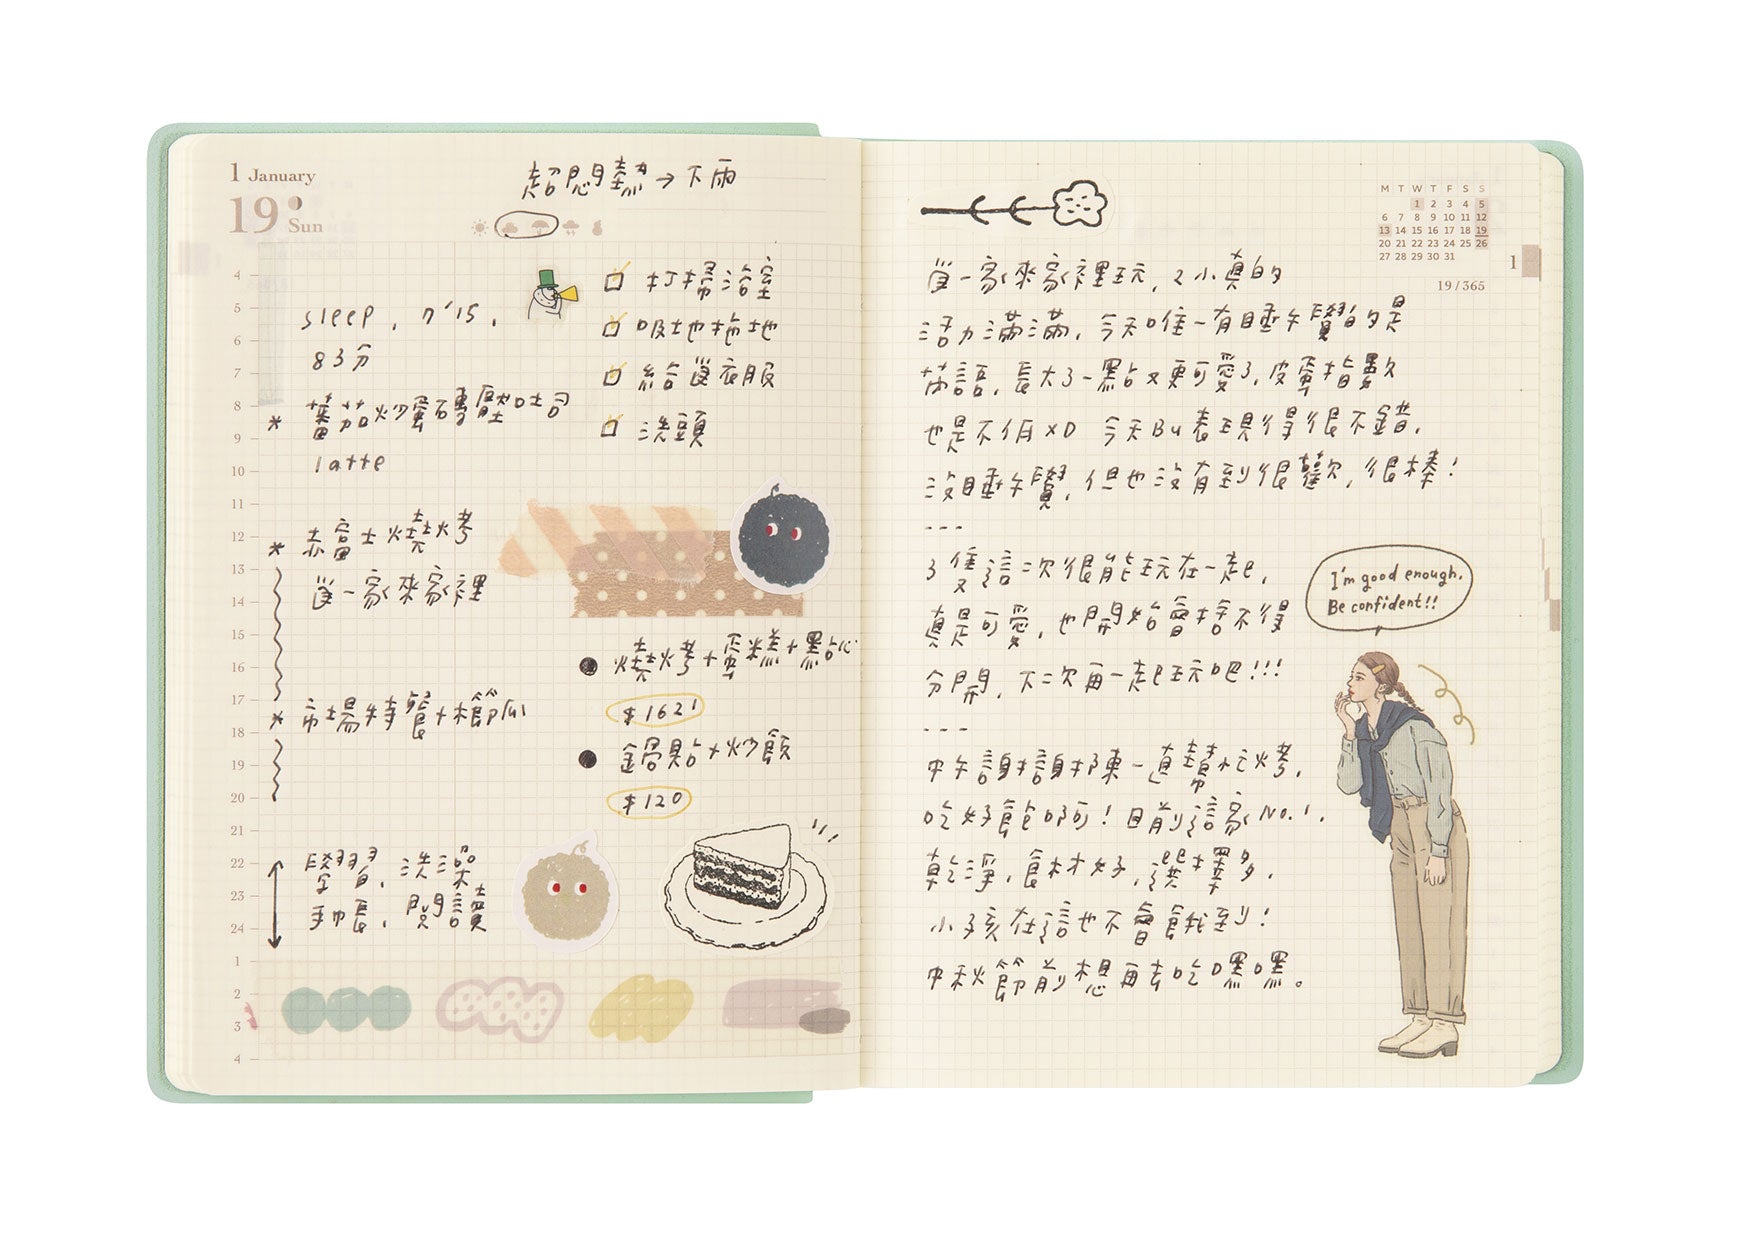 1 January
19
Sun
超悶熱→下雨
4
5
6
7
8
9
10
11
12
13
14
15
16
17
18
19
20
21
22
23
24
1
2
3
4
sleep, 7'15,
83分
* 蕃茄炒蛋磚壓吐司
latte
* 赤富士燒烤
一家來家裡
* 市場特餐+櫛瓜
學習, 洗澡
手帳, 閱讀
打掃浴室
吸地拖地
給 衣服
洗頭
燒烤+蛋糕+點心
$1621
鍋點+炒飯
$120
M T W T F S S
1 2 3 4 5
6 7 8 9 10 11 12
13 14 15 16 17 18 19
20 21 22 23 24 25 26
27 28 29 30 31
1
19/365
一家來家裡玩, 2小真的
活力滿滿, 今天唯一有睡午覺的是
苗語, 長大了一點又更可愛了, 皮蛋指數
也是不低XD 今天Bu表現得很不錯,
沒睡午覺, 但也沒有到很 歡, 很棒!
---
3隻這次很能玩在一起,
真是可愛, 也開始會捨不得
分開, 下次再一起玩吧!!!
---
中午謝謝陳一直幫忙烤,
吃好飽啊! 目前這家No.1,
乾淨, 食材好, 選擇多,
小孩在這也不會餓到!
中秋節前想再去吃嘿嘿。
I'm good enough.
Be confident!!